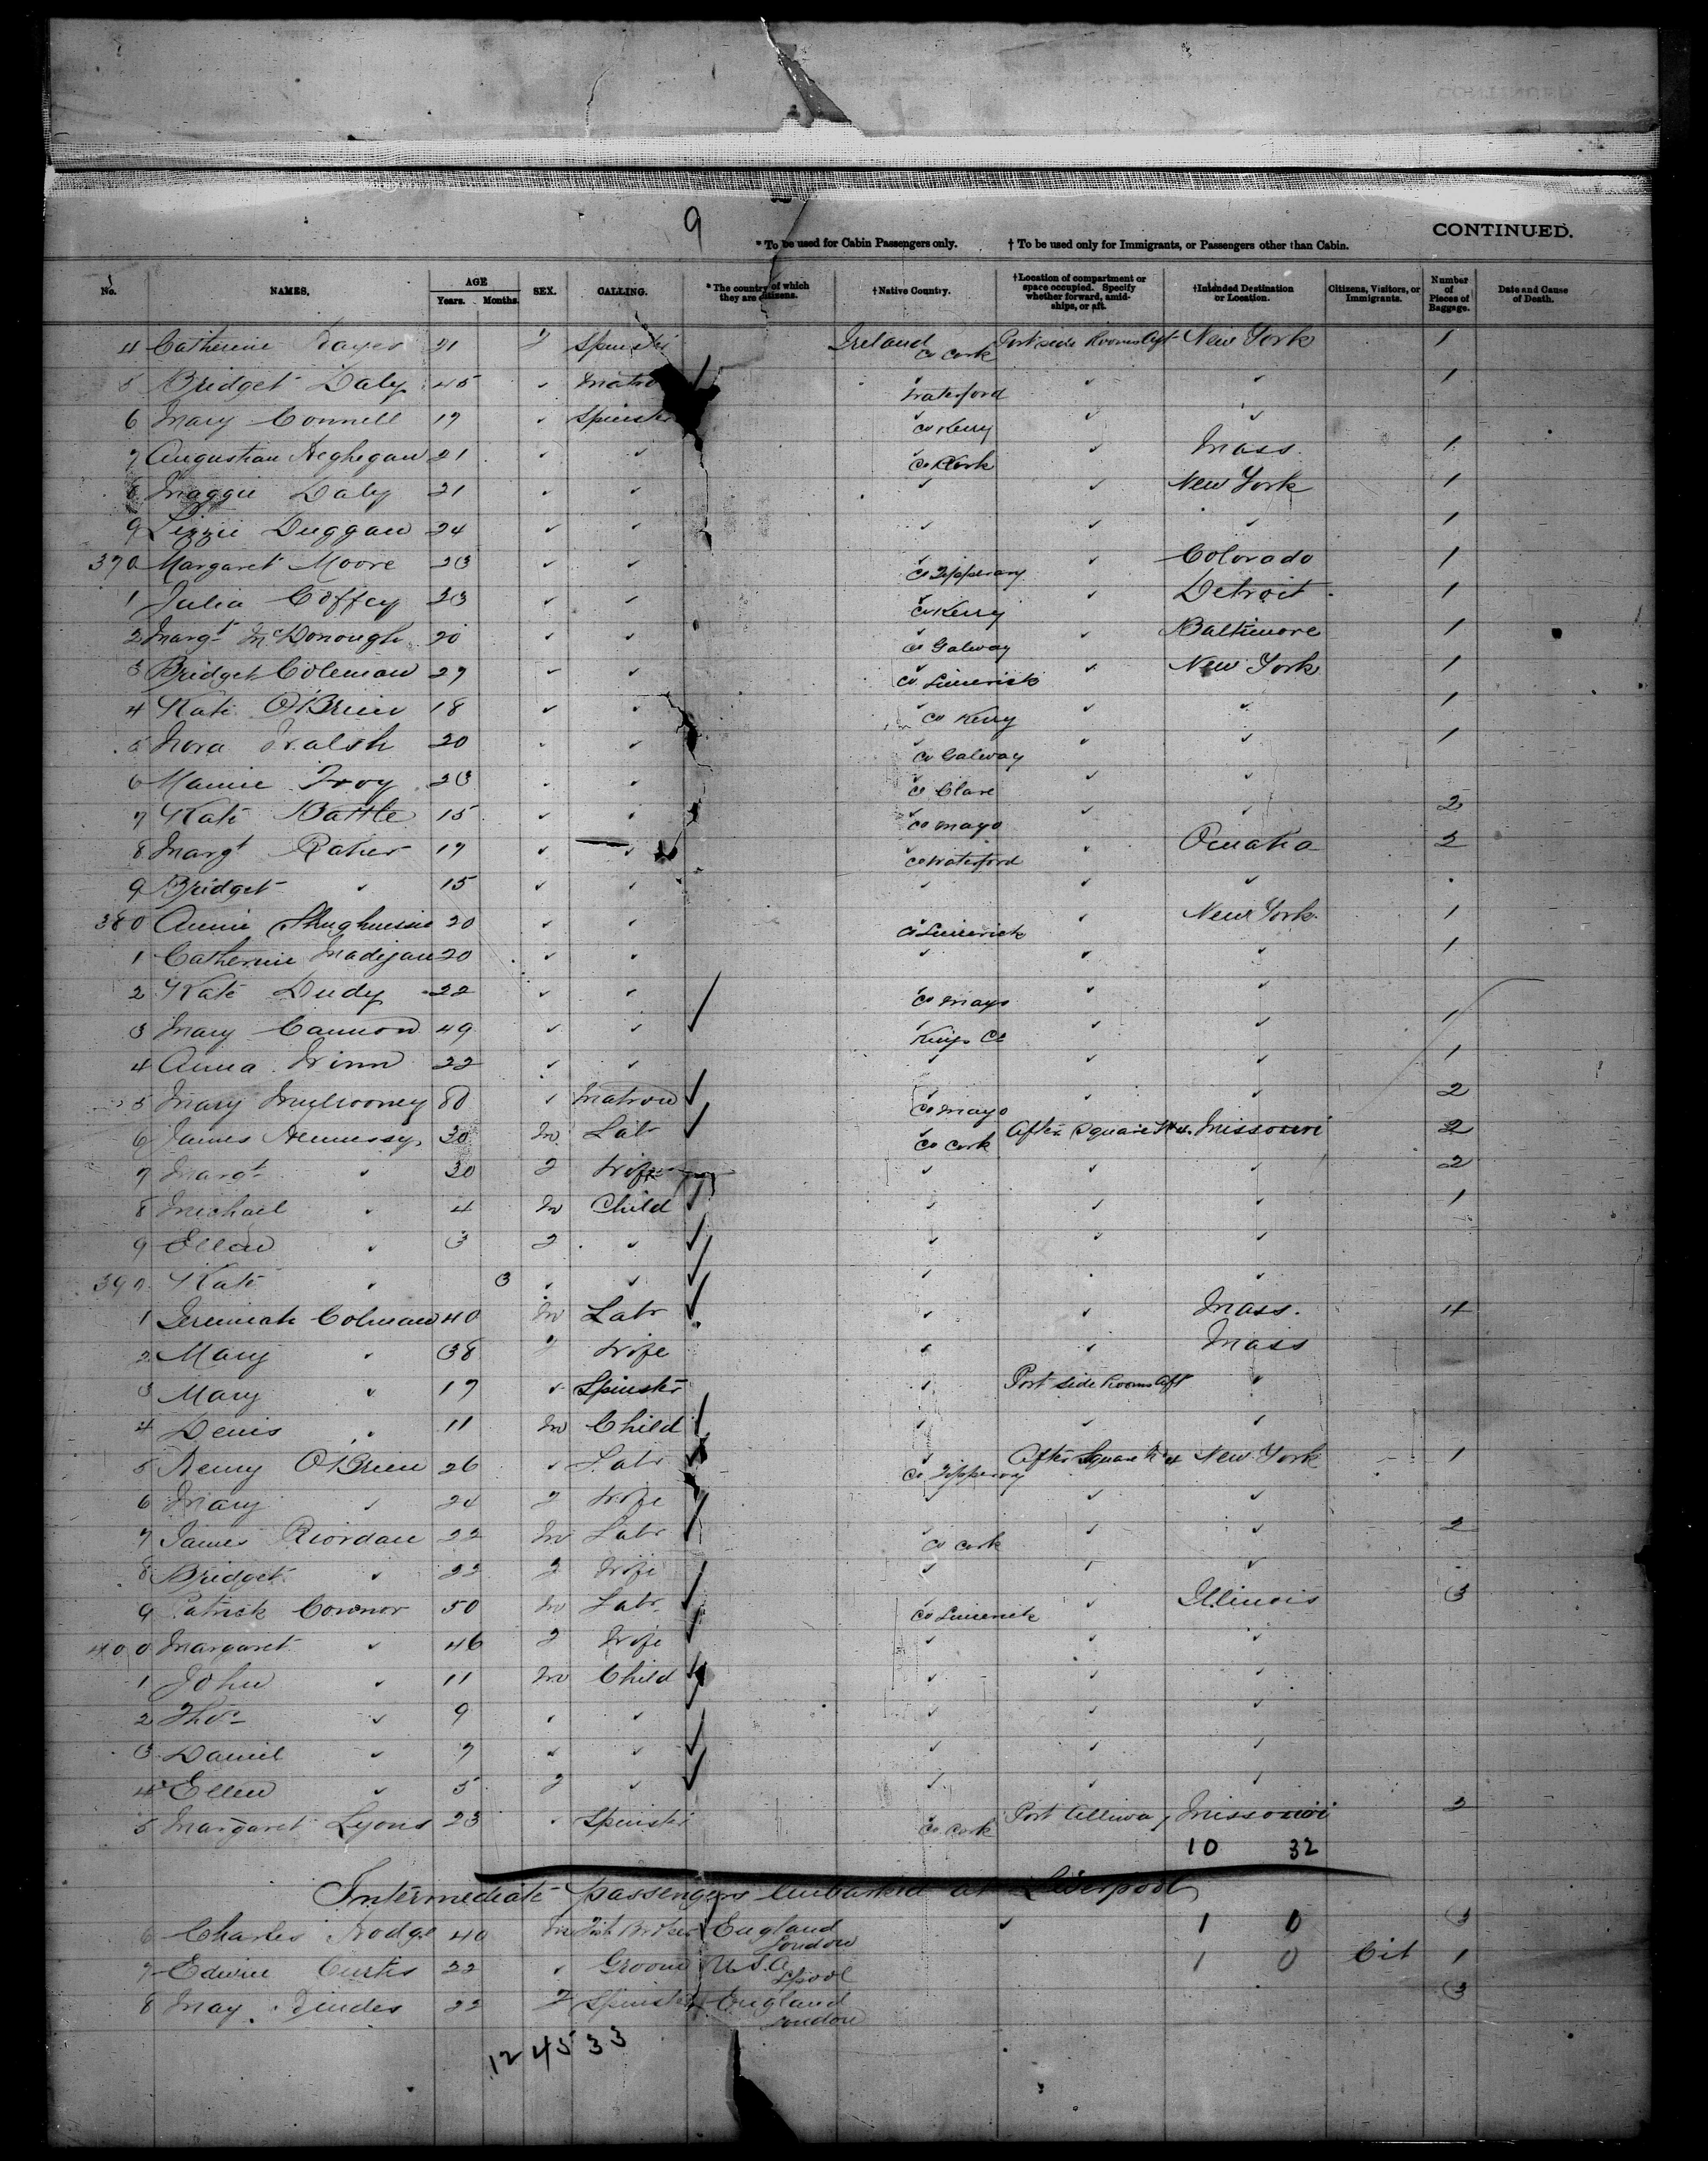 CONTINUED.
9
* To be used for Cabin Passengers only. † To be used only for Immigrants, or Passengers other than Cabin.
No. NAMES. AGE Years. Months. SEX. CALLING. * The country of which they are citizens. † Native Country. † Location of compartment or space occupied. Specify whether forward, amidships, or aft. † Intended Destination or Location. Citizens, Visitors, or Immigrants. Number of Pieces of Baggage. Date and Cause of Death.
4 Catherine Hayes 21 F Spinster Ireland Co Cork Port side Rooms Aft New York 1
5 Bridget Daly 45 " Matro " Waterford " " 1
6 Mary Connell 17 " Spinster " Co Kerry " "
7 Augustian 21 " " " Co Cork " Mass. 1
8 Maggie Daly 21 " " " " New York 1
9 Lizzie Duggan 24 " " " " " 1
370 Margaret Moore 23 " " " Co Tipperary " Colorado 1
1 Julia Coffey 23 " " " Co Kerry " Detroit 1
2 Margt McDonough 20 " " " Co Galway " Baltimore 1
3 Bridget Coleman 27 " " " Co Limerick " New York 1
4 Kate O'Brien 18 " " " Co Kerry " " 1
5 Nora Walsh 20 " " " Co Galway " " 1
6 Mamie Troy 23 " " " Co Clare " "
7 Kate Battle 15 " " " Co Mayo " " 2
8 Margt Raher 17 " " " Co Waterford " Omaha 2
9 Bridget " 15 " " " " "
380 Annie 20 " " " Co Limerick " New York 1
1 Catherine Madigan 20 " " " " " 1
2 Kate Dudy 22 " " " Co Mayo " "
3 Mary Cannon 49 " " " Kings Co " " 1
4 Anna Winn 22 " " " " " 1
5 Mary Mulrooney 60 " Matron " Co Mayo " " 2
6 James Hennessy 30 M Labr " Co Cork After Square Missouri 2
7 Margt " 30 F Wife " " " 2
8 Michael " 4 M Child " " " 1
9 Ellen " 3 F " " " "
390 Kate " 3 " " " " "
1 Jeremiah Colman 40 M Labr " " Mass. 4
2 Mary " 38 F Wife " " Mass
3 Mary " 17 " Spinster " Port side Rooms Aft "
4 Denis " 11 M Child " " "
5 Henry O'Brien 26 " Labr " Co Tipperary After Square New York 1
6 Mary " 24 F Wife " " "
7 James Riordan 22 M Labr " Co Cork " " 2
8 Bridget " 22 F Wife " " "
9 Patrick Connor 50 M Labr " Co Limerick " Illinois 3
400 Margaret " 46 F Wife " " "
1 John " 11 M Child " " "
2 Thos " 9 " " " " "
3 Daniel " 7 " " " " "
4 Ellen " 5 F " " " "
5 Margaret Lyons 23 " Spinster " Co Cork Port Missouri 2
10 32
Intermediate passengers Embarked at Liverpool
6 Charles Hodge 40 M England London " 1 0 3
7 Edwin Curtis 22 " Groom U.S.A. L'pool 1 0 Cit 1
8 May 22 F Spinster England London 3
12 45 33